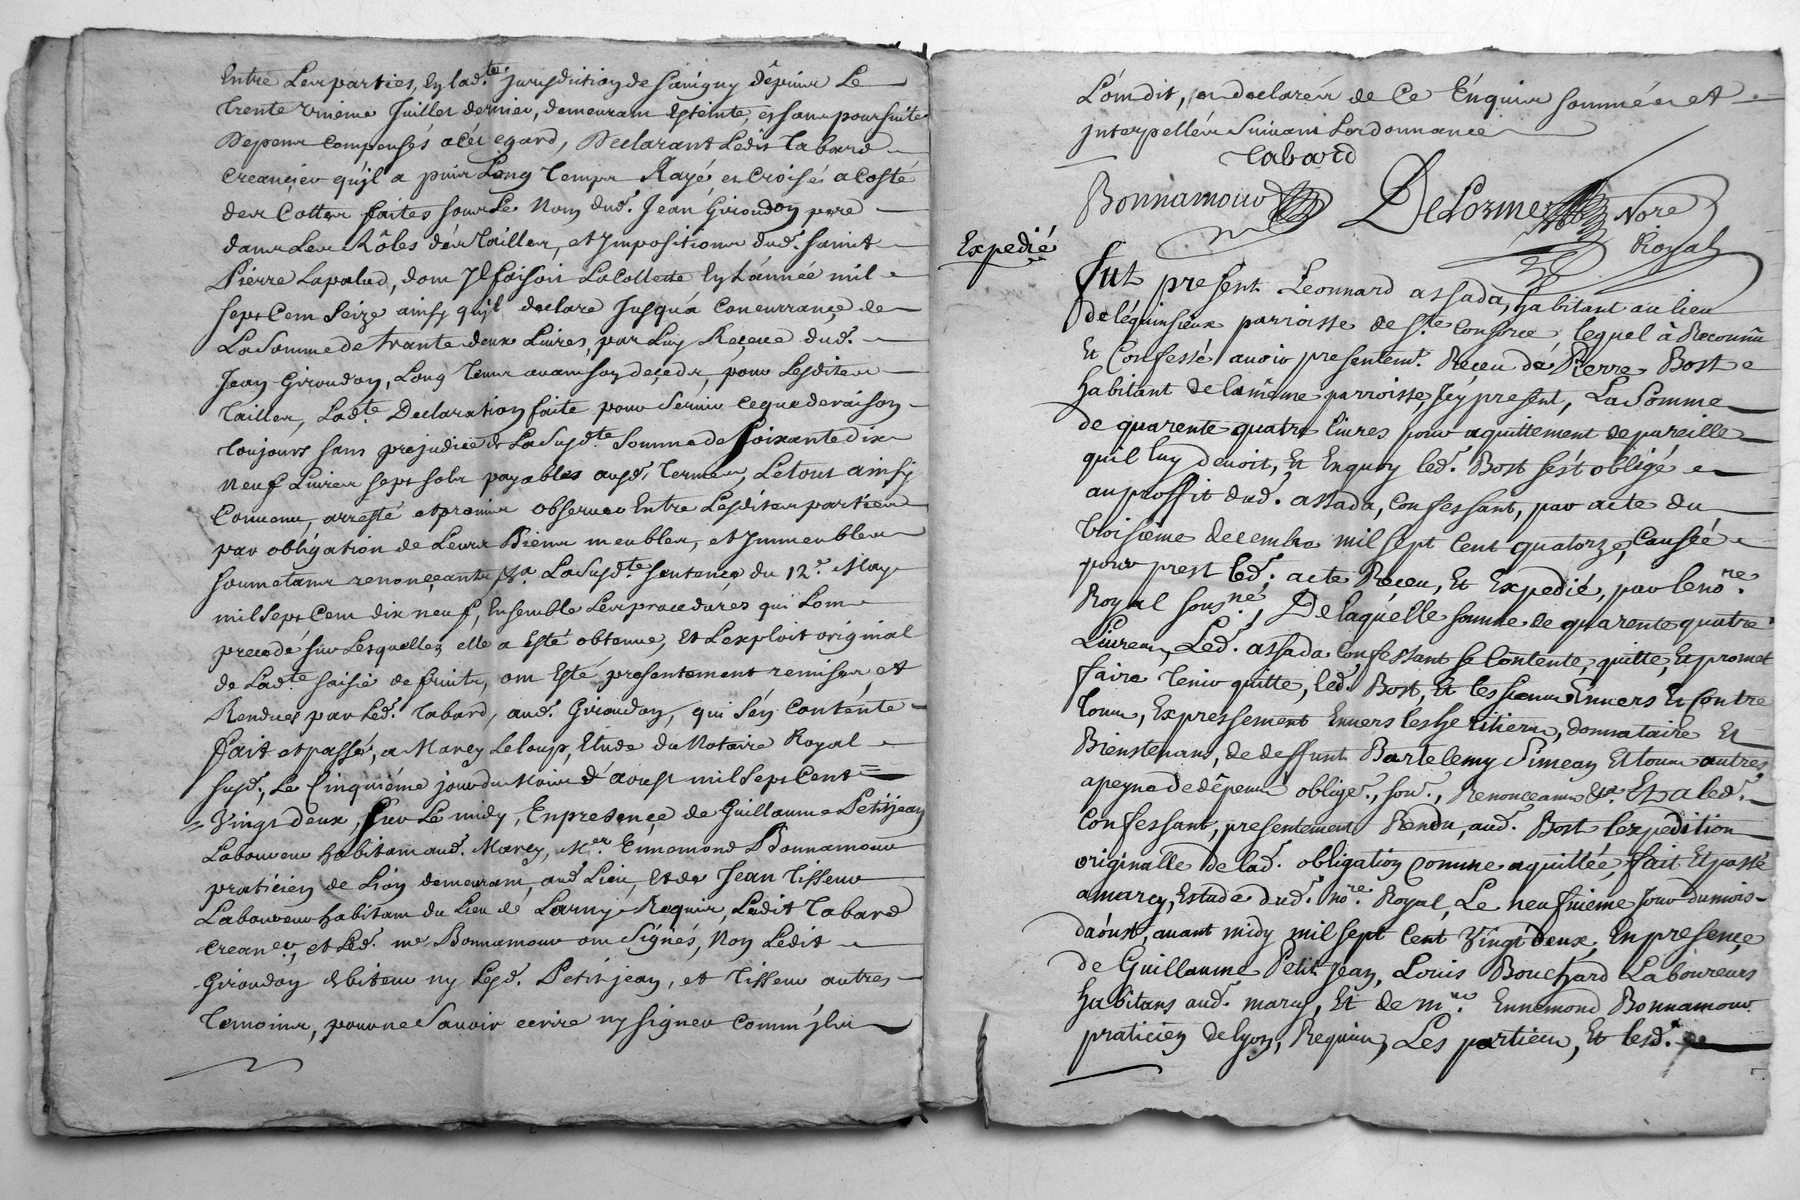 Entre Les parties, En lad.te jurisdiction de Savigny dêpuis Le
trente unieme Juillet dernier, demeurant Esteinte, et sans poursuitte
Depens compensés a cet egard, Declarant Ledit Tabard
Creancier qu'jl a puis Long Temps Rayé et Croisé a Costé
des Cottes faites sour Le Nom dud.t Jean Giroudon pere
dans Les Rôles dés Tailles, et Jmpositions dud.t Saint
Pierre Lapalud, dont Jl faisoit La Collette En L'année mil
sept Cent Seize ainsy qu'jl declare Jusqu'á Concurrançe de
La Somme de trante deux Livres, par Luy Reçeue dud.t
Jean Giroudon, Long Tems avant son deçeds, pour Lesdites
Tailles, Lad.te Declaration faite pour Servir ce que de raison
toujours sans prejudice de La Susd.te Somme de Soixante dix
neuf Livres sept sols payables ausd.ts Termes, Le tout ainsy
Convenu, arresté et promis observer Entre Lesdites parties
par obligation de Leurs Biens meubles, et Jmmeubles
soumetans renonçeants &.a La Susd.te Sentençe du 12.e May
mil Sept Cent dix neuf, Ensemble Les procedures qui L'ont
precedé sur Lesquelles elle a Esté obtenue, Et L'exploit original
de Lad.te saisie de fruits, ont Esté presentement remises, et
Rendues par Led.t Tabard, aud.t Giroudon, qui s'én Contente
fait et passé, a Marcy Leloup, Etude du Notaire Royal
susd.t, Le Cinquiéme jour du Mois d'aoust mil Sept Cent =
= Vingt deux, Sur Le midy, En presençe de Guillaume Petitjean
Laboureur habitant aud.t Marcy, M.er Ennemond Bonnamour
praticien de Lion demeurant, aud.t Lieu, Et de Jean Tisseur
Laboureur habitant du Lieu de Larny Requis, Ledit Tabard
Crean.er, et Led.t m.e Bonnamour ont Signés, Non Ledit
Giroudon debiteur ny Lesd.ts Petitjean, et Tisseur autres
Temoins, pour ne Savoir ecrire ny signer Comm'jls
L'ont dit, et declarés de Ce Enquis sommés et
Interpellés Suivant L'ordonnance
Tabard
Bonnamour DeLorme Nore
Royal
Expedié
fut present Leonnard assada, habitant au lieu
de léquinsieux parroisse de S.te Consorce, lequel à Reconnû
Et Confessé avoir presentem.t Reçeu de Pierre Bost
habitant de la mème parroisse, Jcy present, La Somme
de quarente quatre livres pour aquittement de pareille
quil luy devoit, Et En quoy led.t Bost s'ést obligé
au proffit dud.t assada, Confessant, par acte du
troisième decembre mil sept Cent quatorze, Causée
pour prest led.t acte Reçeu, Et Expedié, par le no.re
Royal sous.né, De laquelle somme de quarente quatre
Livres, Led.t assada Confessant se Contente, quitte, Et promet
faire tenir quitte, led.t Bost, Et les siens Envers Et Contre
tous, Expressement Envers les heritiers, donnataire Et
Bienstenans, de deffunt Bartelemy Simean Et tous autres,
a peyne de dêpens oblige.t, sou.t, Renonçeants &.a Et a led.t
Confessant, presentement Rendu, aud.t Bost l'expedition
originalle de lad.t obligation comme aquittée, fait Et passé
a marcy, Estude dud.t no.re Royal, Le neufvieme jour du mois
d'aoust, avant midy mil sept Cent Vingt deux, En presençe
de Guillaume Petit Jean, Louis Bouchard Laboureurs
habitans aud.t marcy, Et de m.re Ennemond Bonnamour
praticien de lyon, Requis, Les parties, Et lesd.t